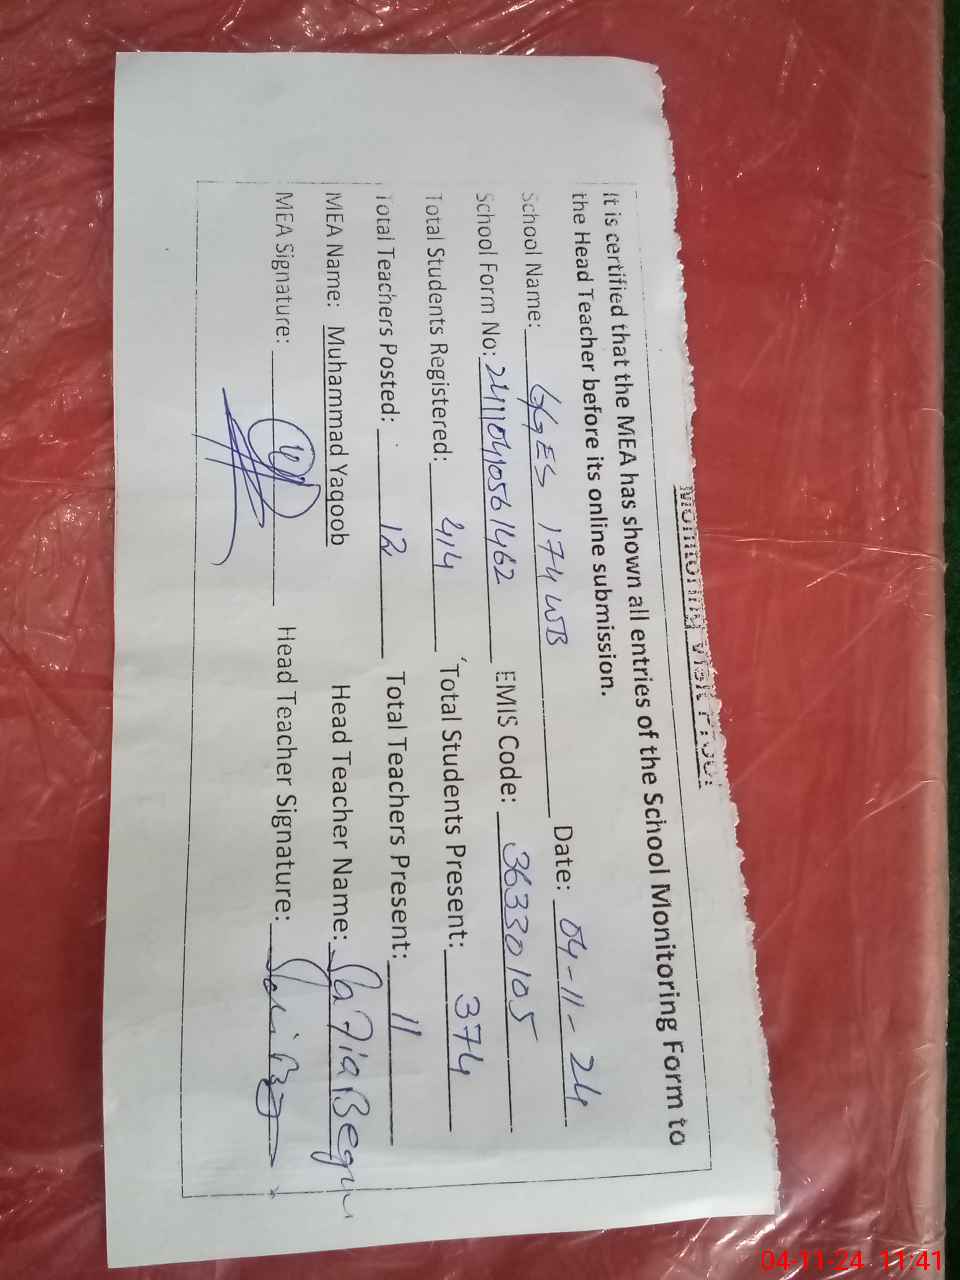 Monitoring Visit Proof
It is certified that the MEA has shown all entries of the School Monitoring Form to
the Head Teacher before its online submission.
School Name: GGES 174 WB Date: 04-11-24
School Form No: 24110410561462 EMIS Code: 36330105
Total Students Registered: 414 Total Students Present: 374
Total Teachers Posted: 12 Total Teachers Present: 11
MEA Name: Muhammad Yaqoob Head Teacher Name: Safia Begum
MEA Signature: Head Teacher Signature:
04-11-24 11:41